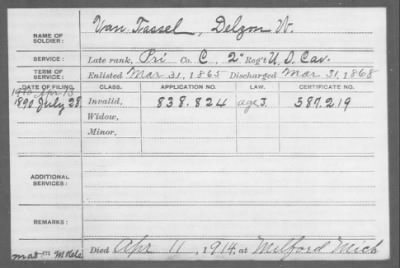 NAME OF SOLDIER: Van Tassel, Delzon W.
SERVICE: Late rank, Pri Co. C, 2" Reg't U.S. Cav.
TERM OF SERVICE: Enlisted Mar. 31, 1865 Discharged Mar. 31, 1868
DATE OF FILING. CLASS. APPLICATION NO. LAW. CERTIFICATE NO.
1890 July 28 Invalid, 838.824 587.219
Widow,
Minor,
ADDITIONAL SERVICES:
REMARKS:
Died Apr 11, 1914, at Milford Mich